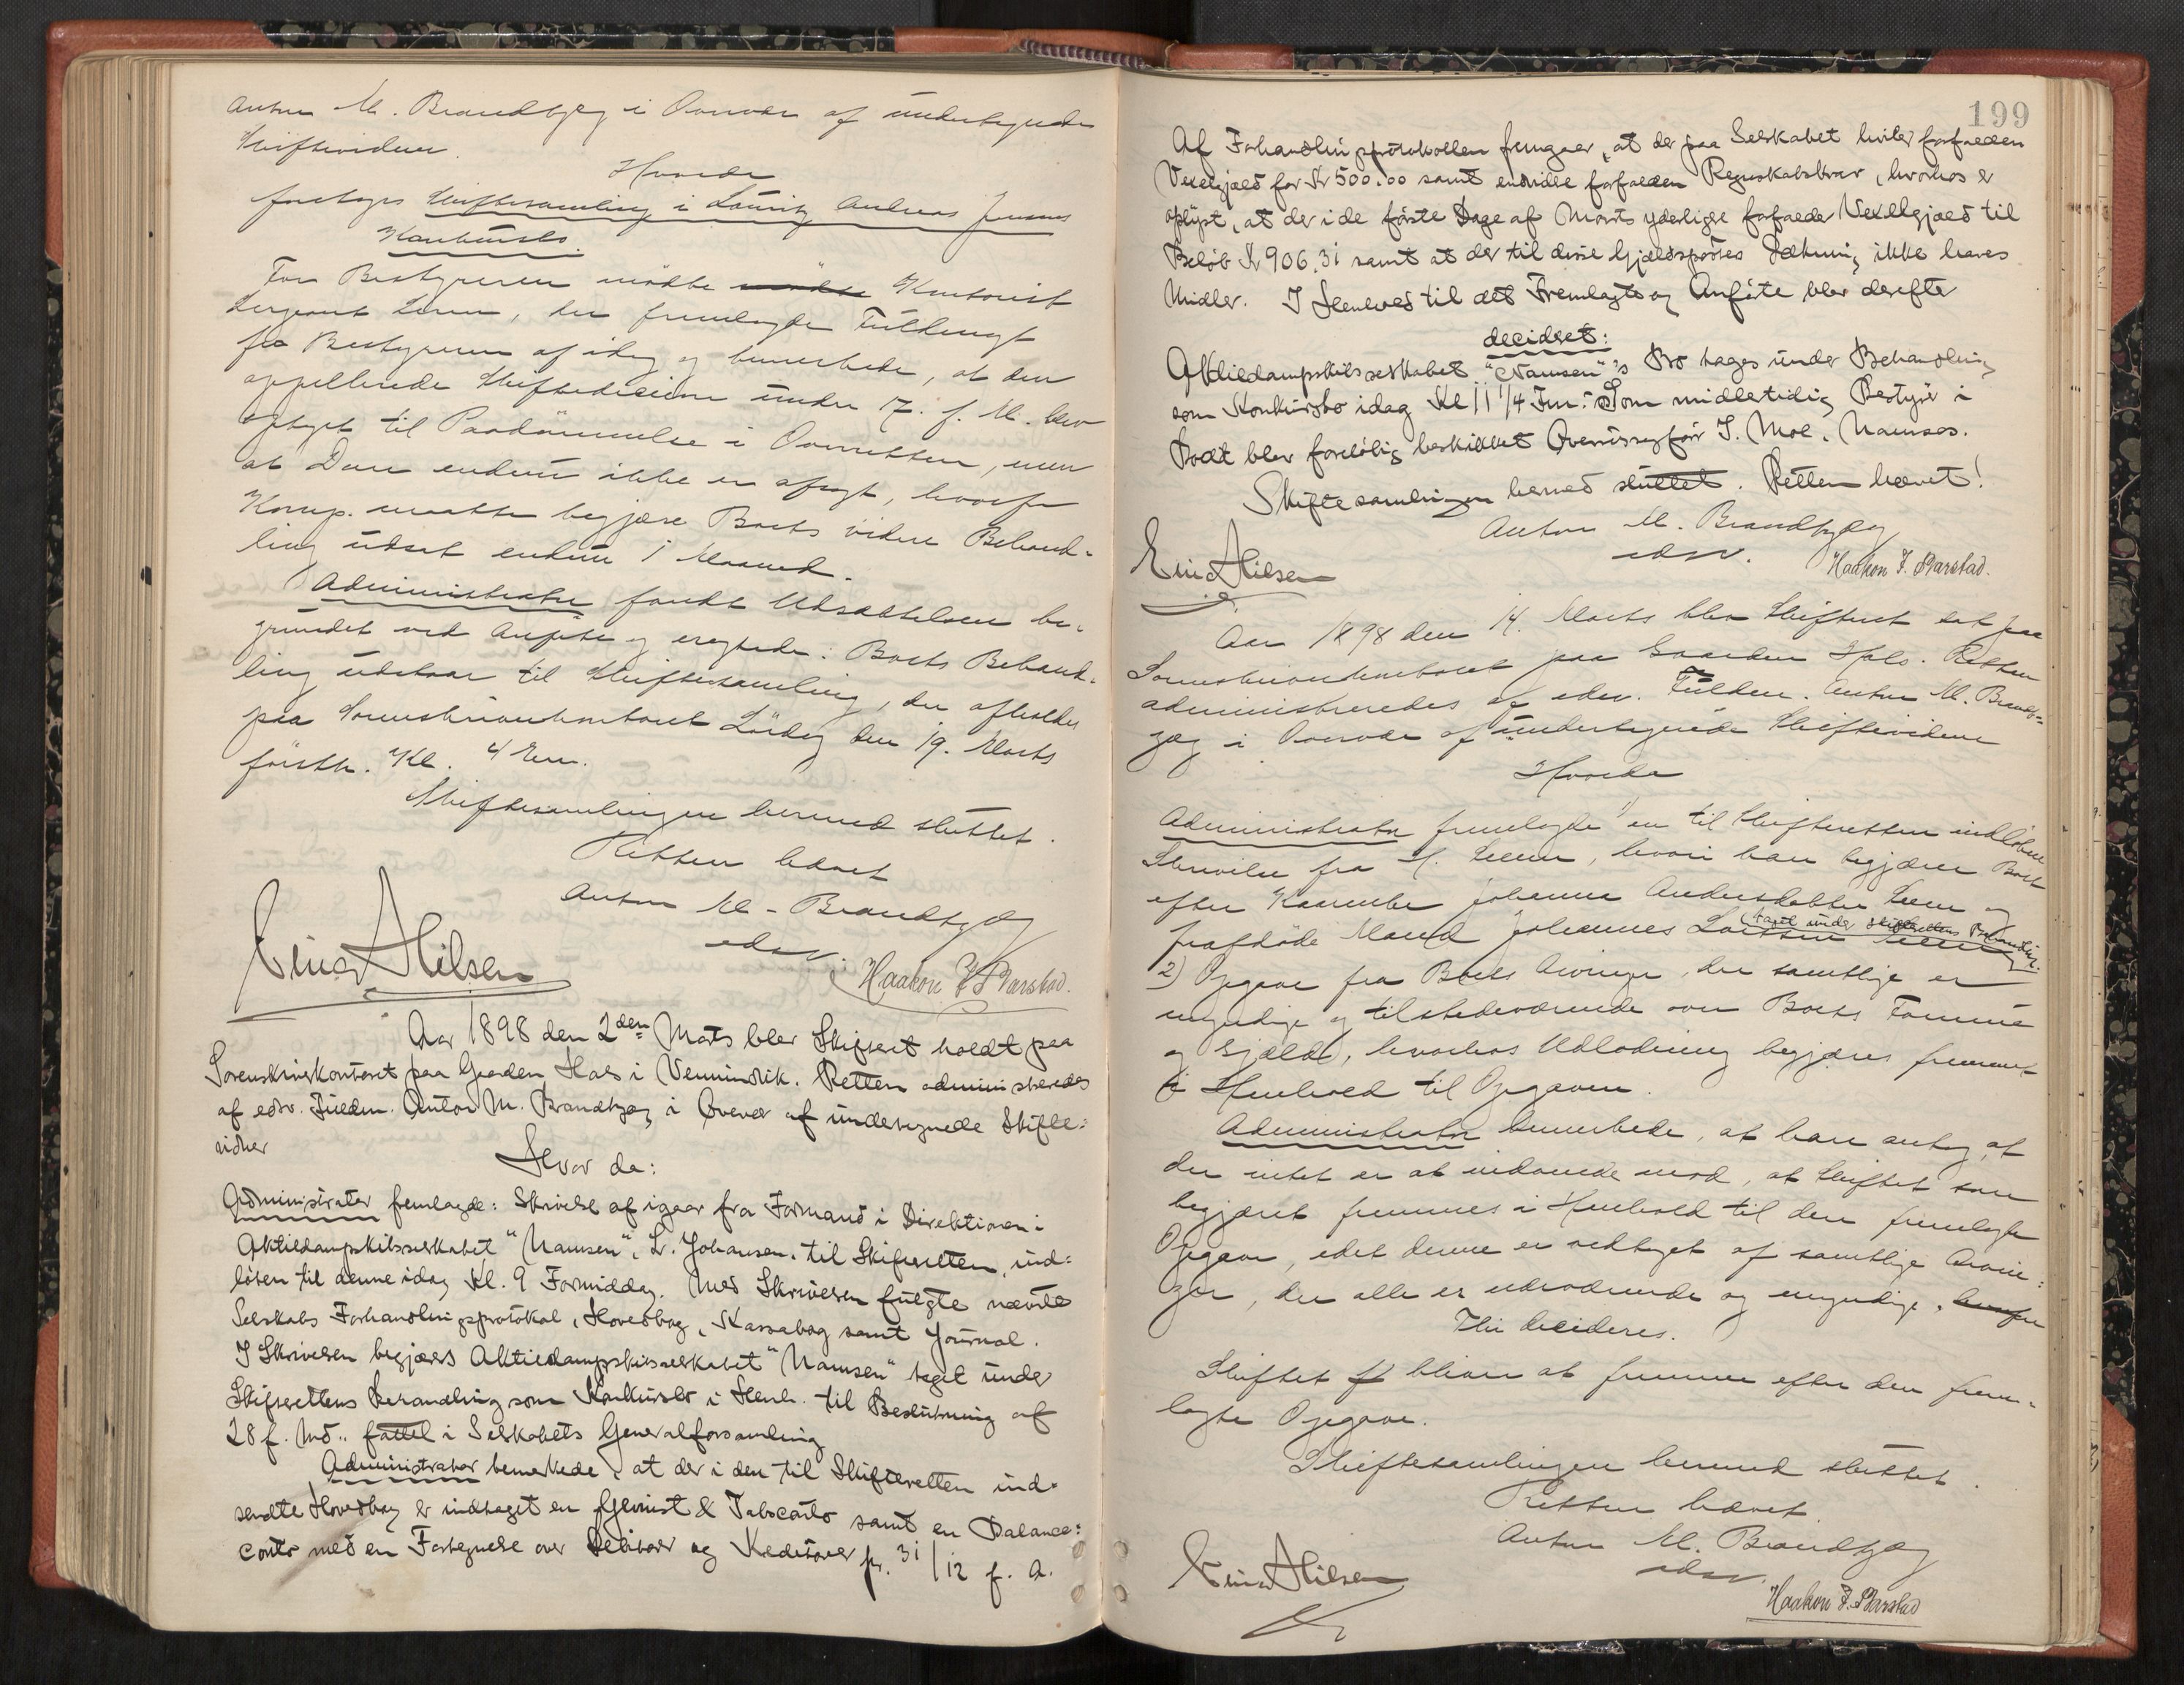 Anton M. Brandtzæg i Overvær af undertegnede
Skiftevidner
Hvorda
foretoges Skiftesamling i Lauritz Andreas Jensens
Konkursbo.
For Bestyreren mödte mödte Kontorist
Sergeant Lorn, der fremlagde Fuldmagt
fra Bestyreren af idag og bemerkede, at den
appellerede Skiftedecision under 17. f. M. blev
optaget til Paadömmelse i Overretten, men
at Dom endnu ikke er afsagt, hvorfor
Komp. maatte begjære Boets videre Behand-
ling udsat endnu 1 Maaned.
Administrator fandt Udsættelsen be-
grundet ved Anförte og eragtede: Boets Behand-
ling udstaar til Skiftesamling, der afholdes
paa Sorenskriverkontoret Lördag den 19. Marts
förstk. Kl. 4 Em.
Skiftesamlingen hermed sluttet.
Retten hævet
Anton M. Brandtzæg
edsv.
Einar Hilsen
Haakon J. Barstad.
Aar 1898 den 2den Marts blev Skifteret holdt paa
Sorenskriverkontoret paa Gaarden Hals i Vemundvik. Retten administreredes
af edsv. Fuldm. Anton M. Brandtzæg i Overvær af undertegnede Skifte=
vidner
Hvor da:
Administrator fremlagde: Skrivelse af igaar fra Formand i Direktionen i
Aktiedampskibsselskabet "Namsen", L. Johansen, til Skifteretten, ind=
löben til denne idag Kl. 9 Formiddag. Med Skrivelsen fulgte nævnte
Selskabs Forhandlingsprotokol, Hovedbog, Kassabog samt Journal.
I Skrivelsen begjæres Aktiedampskibsselskabet "Namsen" taget under
Skifterettens Behandling som Konkursbo i Henh. til Beslutning af
28 f. Md. fattet i Selskabets Generalforsamling
Administrator bemerkede, at der i den til Skifteretten ind-
sendte Hovedbog er indtaget en Gevinst & Tabsconto samt en Balance=
conto med en Fortegnelse over Debitorer og Kreditorer pr. 31/12 f. A.
199
Af Forhandlingsprotokollen fremgaar, at der paa Selskabet hviler forfalden
Vexelgjæld for Kr 500.00 samt endvidre forfalden Regnskabskrav, hvorhos er
oplyst, at der i de förste Dage af Marts yderligere forfalder Vexelgjæld til
Belöb Kr 906.31 samt at der til disse Gjældsposters Dækning ikke haves
Midler. I Henhold til det Fremlagte og Anförte blev derefter
decidret:
Aktiedampskibsselskabet "Namsen"'s Bo tages under Behandling
som Konkursbo idag Kl 11 1/4 Fm. Som midlertidig Bestyrer i
Boet blev foreløbig beskikket Overretssagförer I. Moe, Namsos.
Skiftesamlingen hermed sluttet. Retten hævet!
Anton M. Brandtzæg
edsv.
Einar Hilsen
Haakon J. Barstad.
Aar 1898 den 14. Marts blev Skifteret sat paa
Sorenskriverkontoret paa Gaarden Hals. Retten
administreredes af edsv. Fuldm. Anton M. Brandt=
zæg i Overvær af undertegnede Skiftevidner
Hvorda
Administrator fremlagde 1) en til Skifteretten indlöben
Skrivelse fra H. Leem, hvori han begjærer Boet
efter Kaarenke Johanna Andersdatter Leem og
frafdöde Mand Johannes Larssen Leem
taget under Skifterettens Behandling.
2) Opgave fra Boets Arvinger, der samtlige er
myndige og tilstedeværende over Boets Formue
og Gjæld, hvorhos Udlodning begjæres fremmet
i Henhold til Opgaven.
Administrator bemerkede, at han antog, at
der intet er at indvende mod, at Skiftet som
begjæret fremmes i Henhold til den fremlagte
Opgave, idet denne er vedtaget af samtlige Arvin=
ger, der alle er tilstedeværende og myndige, hvorfor
Thi decideres.
Skiftet bliver at fremme efter den frem-
lagte Opgave.
Skiftesamlingen hermed sluttet.
Retten hævet
Anton M. Brandtzæg
edsv.
Einar Hilsen
Haakon J. Barstad